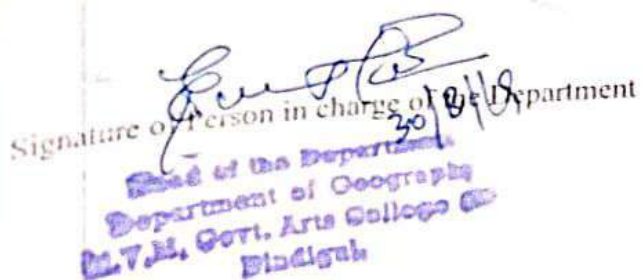 Signature of Person in charge of the Department
30/8/18
Head of the Department
Department of Geography
M.V.M. Govt. Arts College
Dindigul.